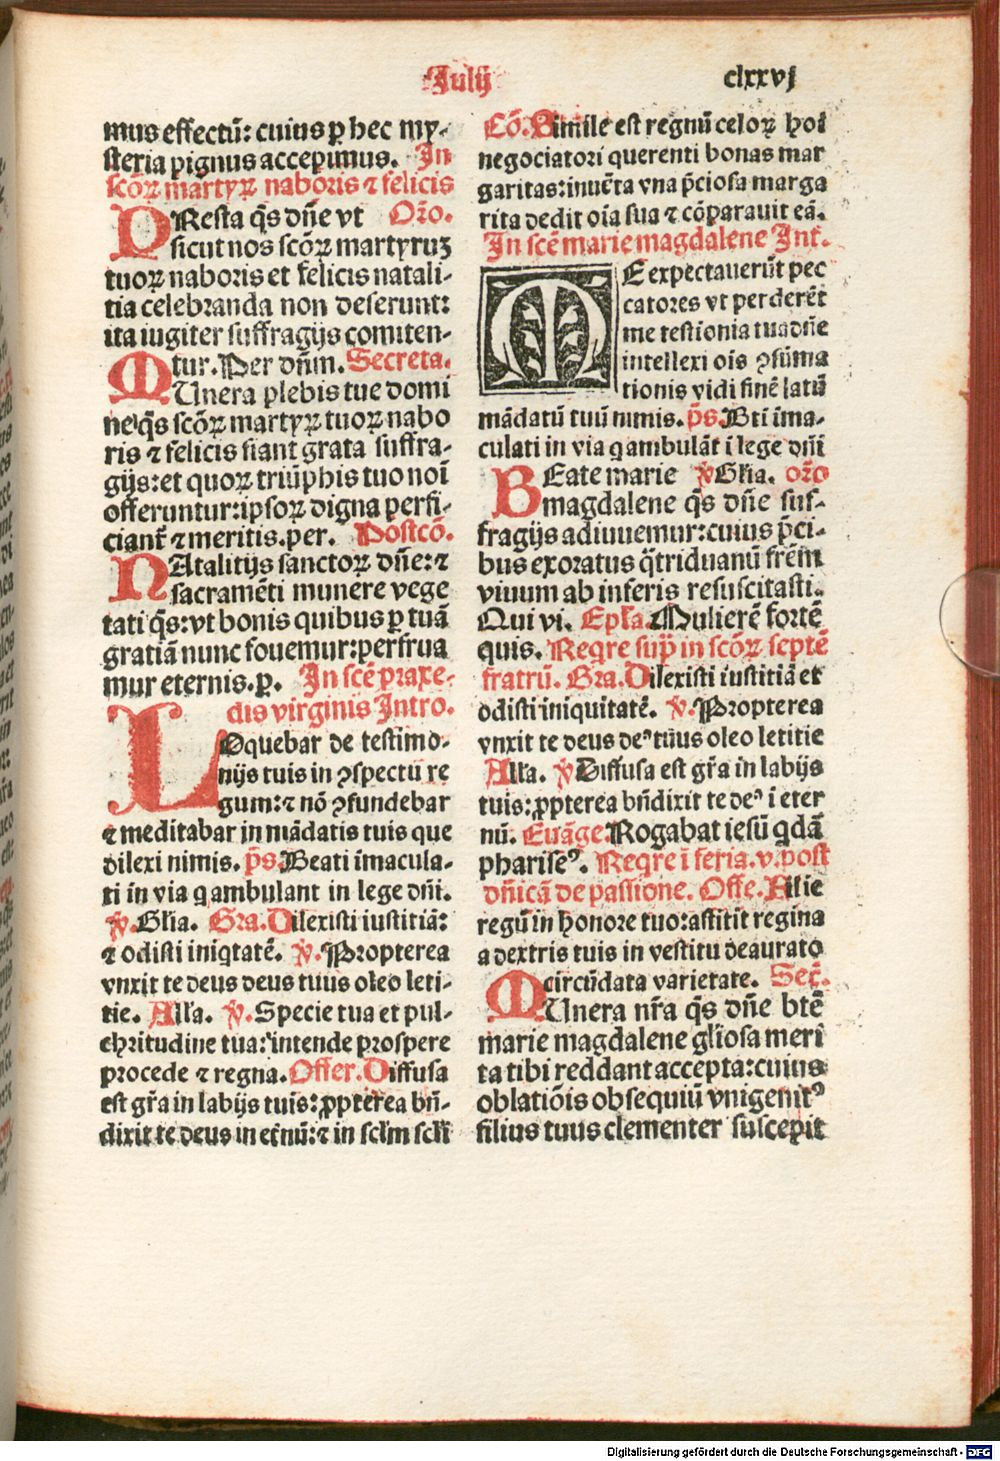 Julij
clxxvj
mus effectū: cuius ꝑ hec my-
steria pignus accepimus. In
scōꝝ martyꝝ naboris ⁊ felicis
PResta q̄s dn̄e vt Or̄o.
sicut nos scōꝝ martyruꝫ
tuoꝝ naboris et felicis natali-
tia celebranda non deserunt:
ita iugiter suffragijs comiten-
tur. Per dn̄m. Secreta.
MUnera plebis tue domi
ne q̄s scōꝝ martyꝝ tuoꝝ nabo
ris ⁊ felicis fiant grata suffra-
gijs: et quoꝝ triūphis tuo noī
offeruntur: ipsoꝝ digna perfi-
ciant̄ ⁊ meritis. per. Postcō.
NAtalitijs sanctoꝝ dn̄e: ⁊
sacramēti munere vege
tati q̄s: vt bonis quibus ꝑ tuā
gratiā nunc fouemur: perfrua
mur eternis. p̄. In scē praxe-
dis virginis Intro.
LOquebar de testimo-
nijs tuis in ꝯspectu re
gum: ⁊ nō ꝯfundebar
⁊ meditabar in mādatis tuis que
dilexi nimis. p̄s. Beati īmacula-
ti in via q ambulant in lege dn̄i.
v̄. Gl̄ia. Gra. Dilexisti iustitiā:
⁊ odisti iniqtatē. v̄. Propterea
vnxit te deus deus tuus oleo leti-
tie. All̄a. v̄. Specie tua et pul-
chritudine tua: intende prospere
procede ⁊ regna. Offer. Diffusa
est gr̄a in labijs tuis: ꝓpterea bn̄-
dixit te deus in et̄nū: ⁊ in scl̄m scl̄i
Cō. Simile est regnū celoꝝ hoī
negociatori querenti bonas mar
garitas: inuēta vna p̄ciosa marga
rita dedit oīa sua ⁊ cōparauit eā.
In scē marie magdalene Int̄.
ME expectauerūt pec
catores vt perderēt
me testionia tua dn̄e
intellexi oīs ꝯsūma
tionis vidi finē latū
mādatū tuū nimis. p̄s. Bti īma-
culati in via q ambulāt ī lege dn̄i
BEate marie v̄ Gl̄ia. or̄o
magdalene q̄s dn̄e suf-
fragijs adiuuemur: cuius p̄ci-
bus exoratus q̄triduanū fr̄em
viuum ab inferis resuscitasti.
Qui vi. Epl̄a. Mulierē fortē
quis. Reqre sup̄ in scōꝝ septē
fratrū. Gra. Dilexisti iustitiā et
odisti iniquitatē. v̄. Propterea
vnxit te deus deꝰ tuus oleo letitie
All̄a. v̄ Diffusa est gr̄a in labijs
tuis: ꝓpterea bn̄dixit te deꝰ ī eter
nū. Euāge. Rogabat iesū qdā
phariseꝰ. Reqre ī feria. v. post
dn̄icā de passione. Offe. Filie
regū in honore tuo: astitit regina
a dextris tuis in vestitu deaurato
circūdata varietate. Sec̄.
MUnera nr̄a q̄s dn̄e btē
marie magdalene gl̄iosa meri
ta tibi reddant accepta: cuius
oblatiōis obsequiū vnigenitꝰ
filius tuus clementer suscepit
Digitalisierung gefördert durch die Deutsche Forschungsgemeinschaft - DFG